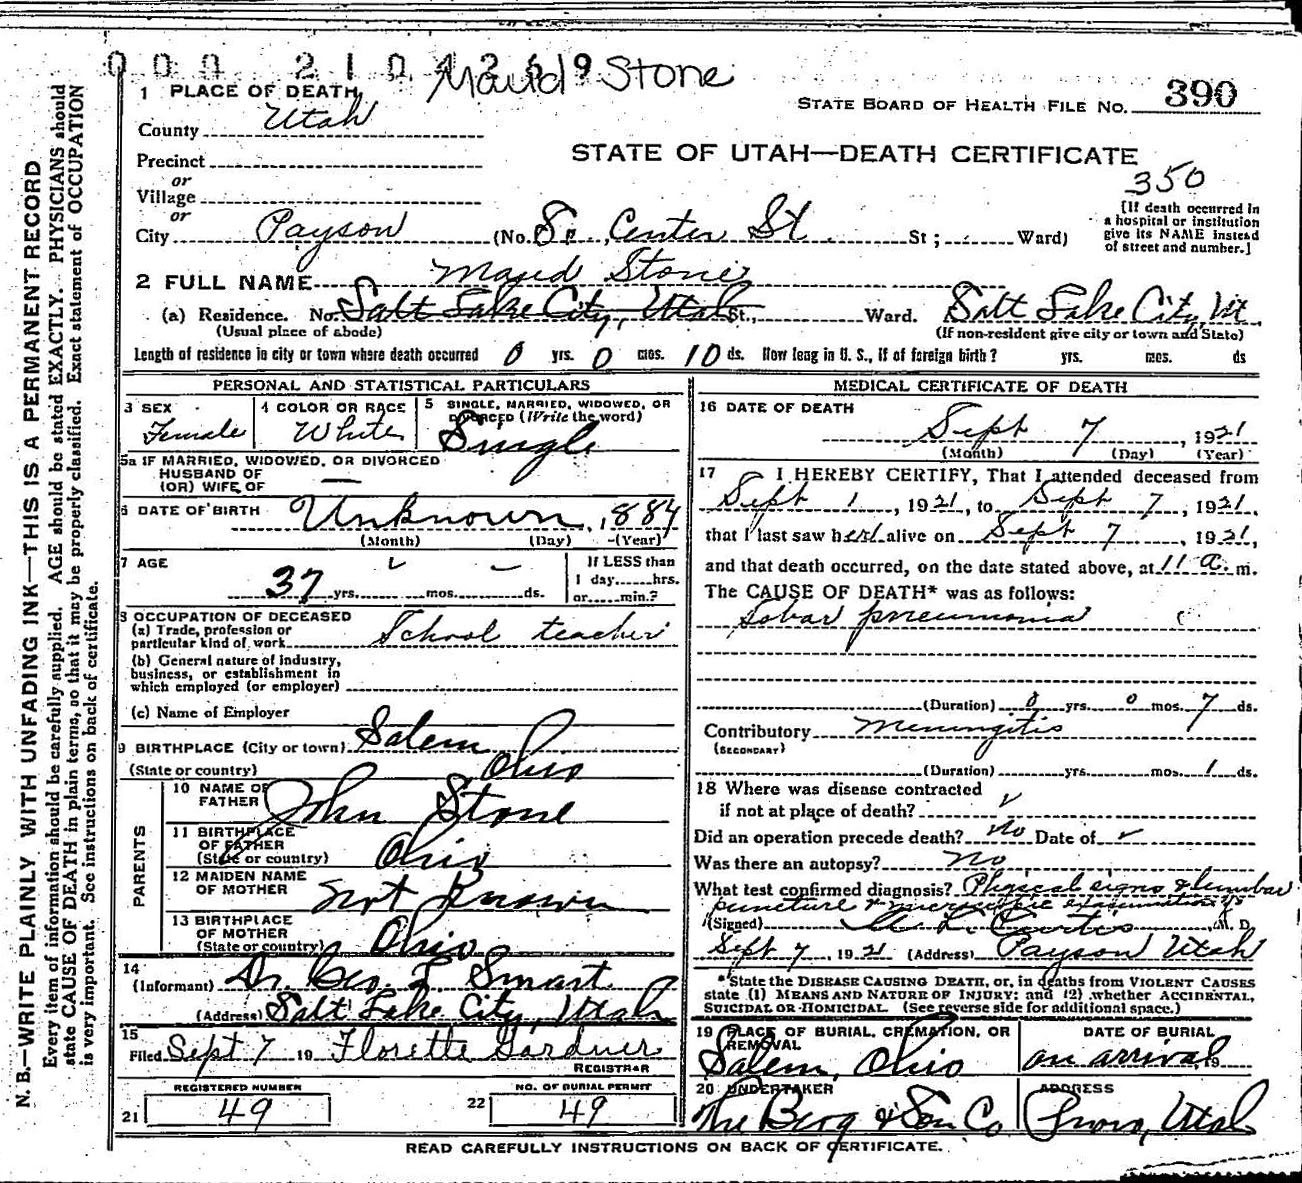 000 2104269
Maud Stone
1 PLACE OF DEATH
STATE BOARD OF HEALTH FILE NO. 390
County Utah
Precinct
STATE OF UTAH—DEATH CERTIFICATE
or
350
Village
or
[If death occurred in
a hospital or institution
give its NAME instead
of street and number.]
City Payson (No. So. Center St. St; Ward)
2 FULL NAME Maud Stone
(a) Residence. No. Salt Lake City, Utah St., Ward. Salt Lake City, Ut.
(Usual place of abode) (If non-resident give city or town and State)
Length of residence in city or town where death occurred 0 yrs. 0 mos. 10 ds. How long in U. S., if of foreign birth? yrs. mos. ds
PERSONAL AND STATISTICAL PARTICULARS
3 SEX
Female
4 COLOR OR RACE
White
5 SINGLE, MARRIED, WIDOWED, OR
DIVORCED (Write the word)
Single
5a IF MARRIED, WIDOWED, OR DIVORCED
HUSBAND OF
(OR) WIFE OF —
6 DATE OF BIRTH Unknown, 1884
(Month) (Day) (Year)
7 AGE
37 yrs. mos. ds.
If LESS than
1 day......hrs.
or......min.?
8 OCCUPATION OF DECEASED
(a) Trade, profession or
particular kind of work School teacher
(b) General nature of industry,
business, or establishment in
which employed (or employer)
(c) Name of Employer
9 BIRTHPLACE (City or town) Salem
(State or country) Ohio
PARENTS
10 NAME OF
FATHER John Stone
11 BIRTHPLACE
OF FATHER
(State or country) Ohio
12 MAIDEN NAME
OF MOTHER Not Known
13 BIRTHPLACE
OF MOTHER
(State or country) Ohio
14
(Informant) Dr. Geo. L. Smart
(Address) Salt Lake City, Utah
15
Filed Sept 7 19 Florette Gardner
REGISTRAR
REGISTERED NUMBER
21 49
NO. OF BURIAL PERMIT
22 49
MEDICAL CERTIFICATE OF DEATH
16 DATE OF DEATH
Sept 7, 1921
(Month) (Day) (Year)
17 I HEREBY CERTIFY, That I attended deceased from
Sept 1, 1921, to Sept 7, 1921,
that I last saw her alive on Sept 7, 1921,
and that death occurred, on the date stated above, at 11 a. m.
The CAUSE OF DEATH* was as follows:
Lobar pneumonia
(Duration) 0 yrs. 0 mos. 7 ds.
Contributory Meningitis
(SECONDARY)
(Duration) yrs. mos. 1 ds.
18 Where was disease contracted
if not at place of death?
Did an operation precede death? No Date of
Was there an autopsy? No
What test confirmed diagnosis? Physical signs & lumbar
puncture & microscopic examination
(Signed) A. L. Curtis M. D.
Sept 7, 1921 (Address) Payson Utah
*State the DISEASE CAUSING DEATH, or, in deaths from VIOLENT CAUSES
state (1) MEANS AND NATURE OF INJURY; and (2) whether ACCIDENTAL,
SUICIDAL OR HOMICIDAL. (See reverse side for additional space.)
19 PLACE OF BURIAL, CREMATION, OR
REMOVAL
Salem, Ohio
DATE OF BURIAL
on arrival, 19
20 UNDERTAKER
The Berg & Son Co
ADDRESS
Provo, Utah
READ CAREFULLY INSTRUCTIONS ON BACK OF CERTIFICATE.
N. B.—WRITE PLAINLY WITH UNFADING INK—THIS IS A PERMANENT RECORD
Every item of information should be carefully supplied. AGE should be stated EXACTLY. PHYSICIANS should
state CAUSE OF DEATH in plain terms, so that it may be properly classified. Exact statement of OCCUPATION
is very important. See instructions on back of certificate.